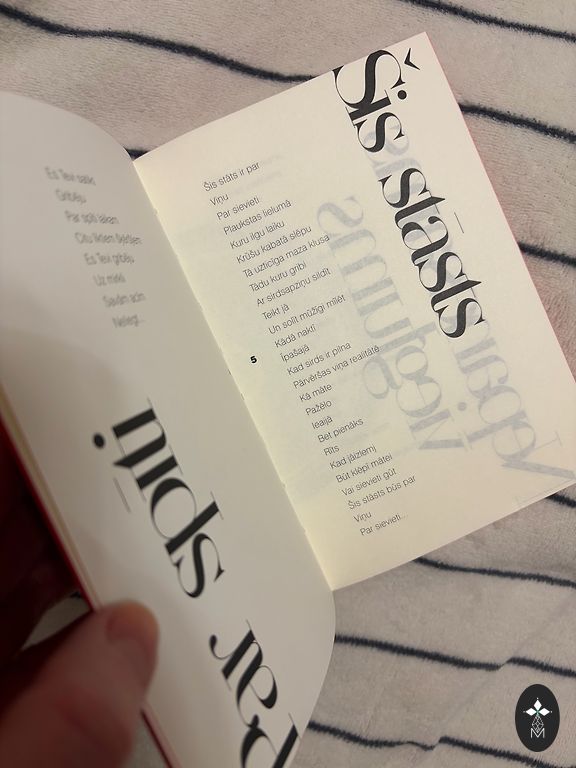 Es Tevi satiki
Gribēju
Par spīti laikam
Citu liktem
Es Tevi gribēju
Uz mirkli
Savām acīm
Nelegt...
Par spīti
Šis stāsts
Šīs stāts ir par
Viņu
Par sievieti
Plaukstas lielumā
Kuru ilgu laiku
Krūšu kabatā slēpu
Tā uzticīga maza klusa
Tādu kuru gribi
Ar sirdsapziņu sildīt
Teikt jā
Un solīt mūžīgi mīlēt
Kādā naktī
Īpašajā
Kad sirds ir pilna
Pārvēršas viņa realitātē
Kā māte
Pažēlo
Ieaijā
Bet pienāks
Rīts
Kad jāaizlemj
Būt klēpī mātei
Vai sievieti gūt
Šis stāsts būs par
Viņu
Par sievieti...
5